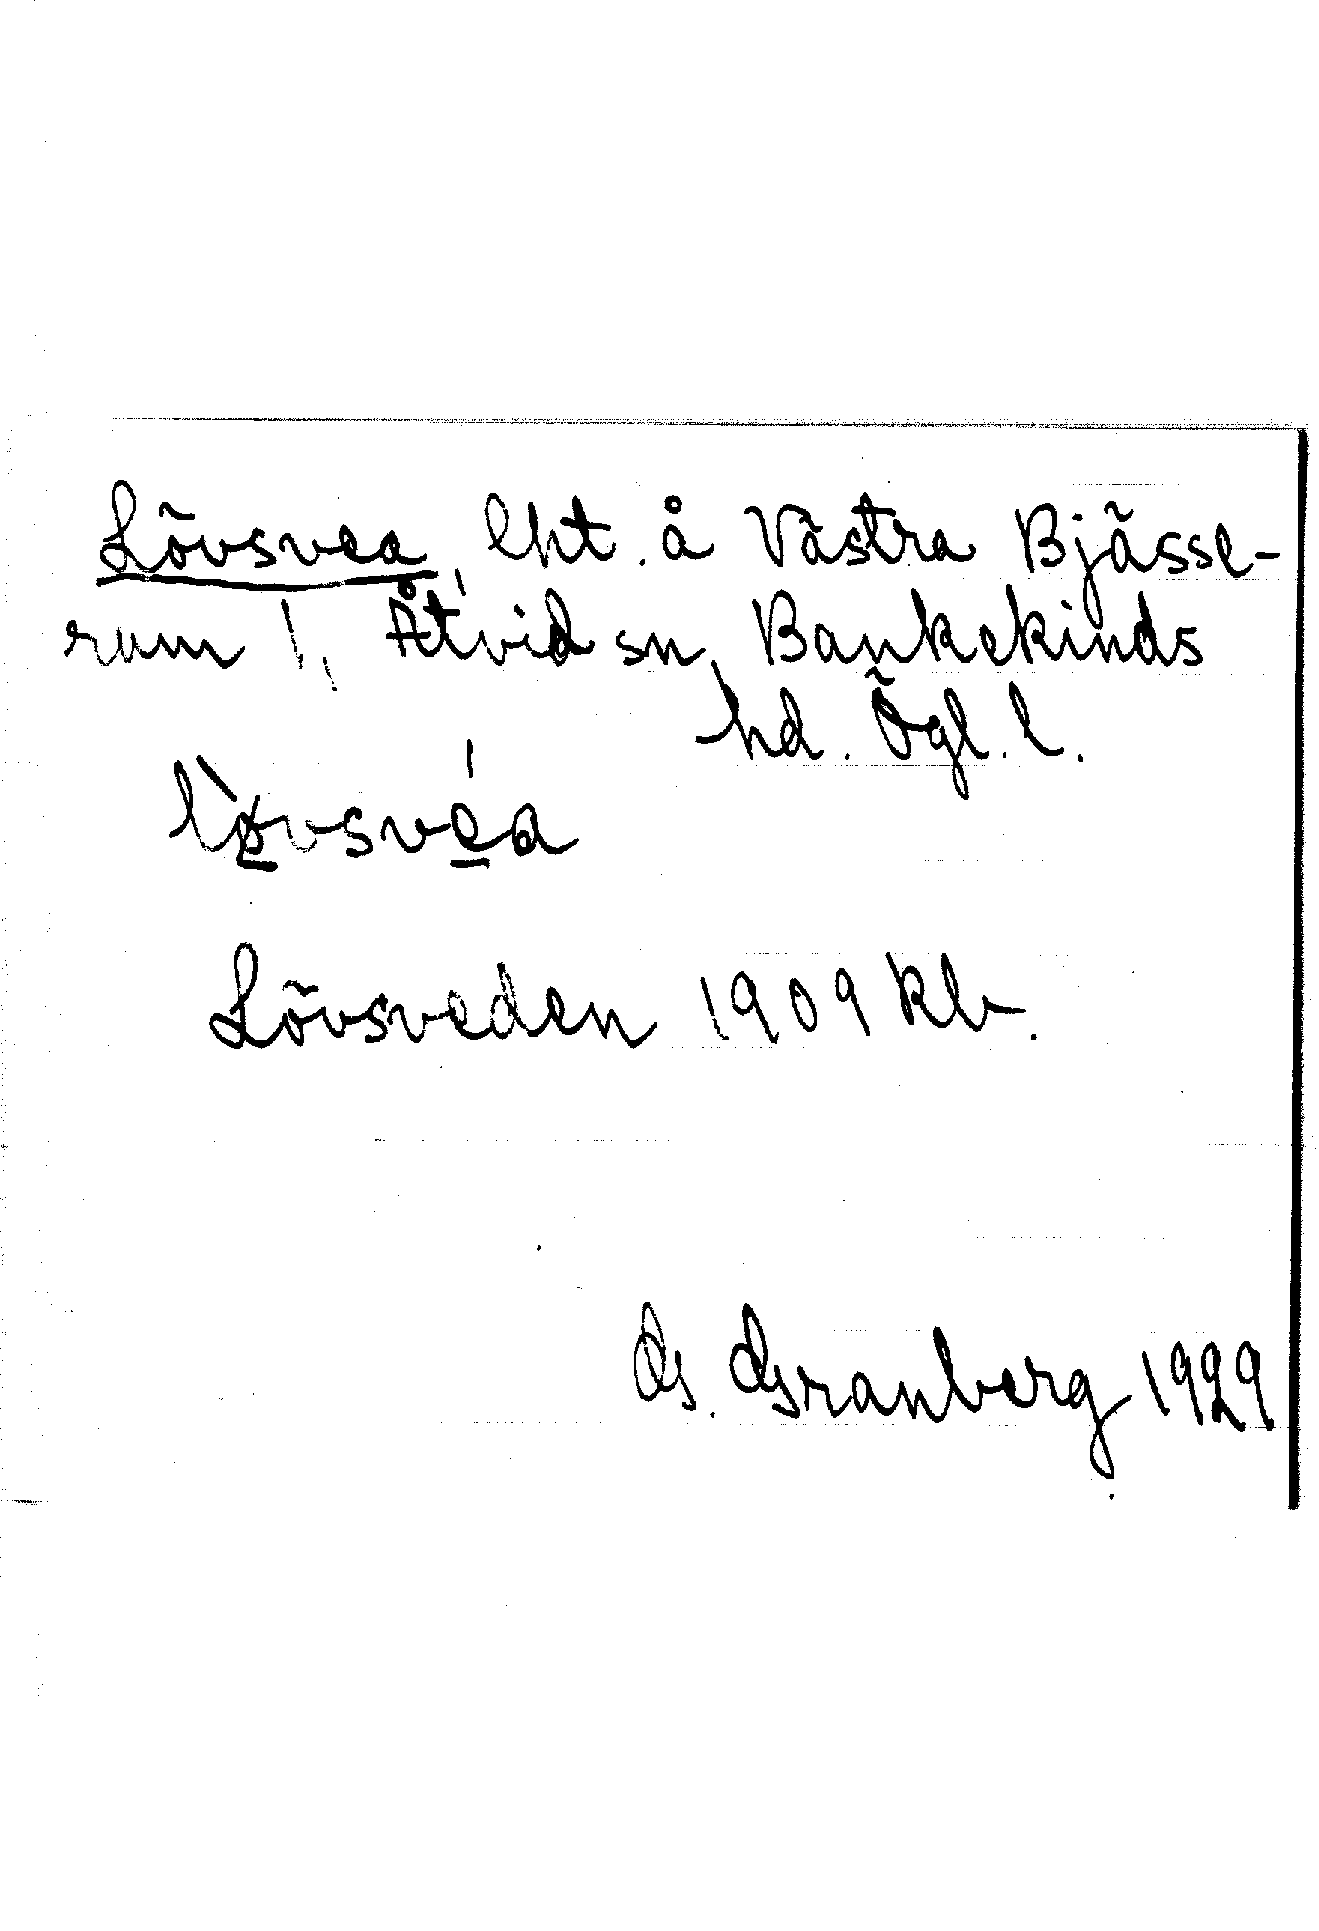 Lövsvea, lht. å Västra Bjässe-
rum 1, Åtvid sn, Bankekinds
hd. Ögl. l.
lø̀vsvéa
Lövsveden 1909 kb.
G. Granberg 1929